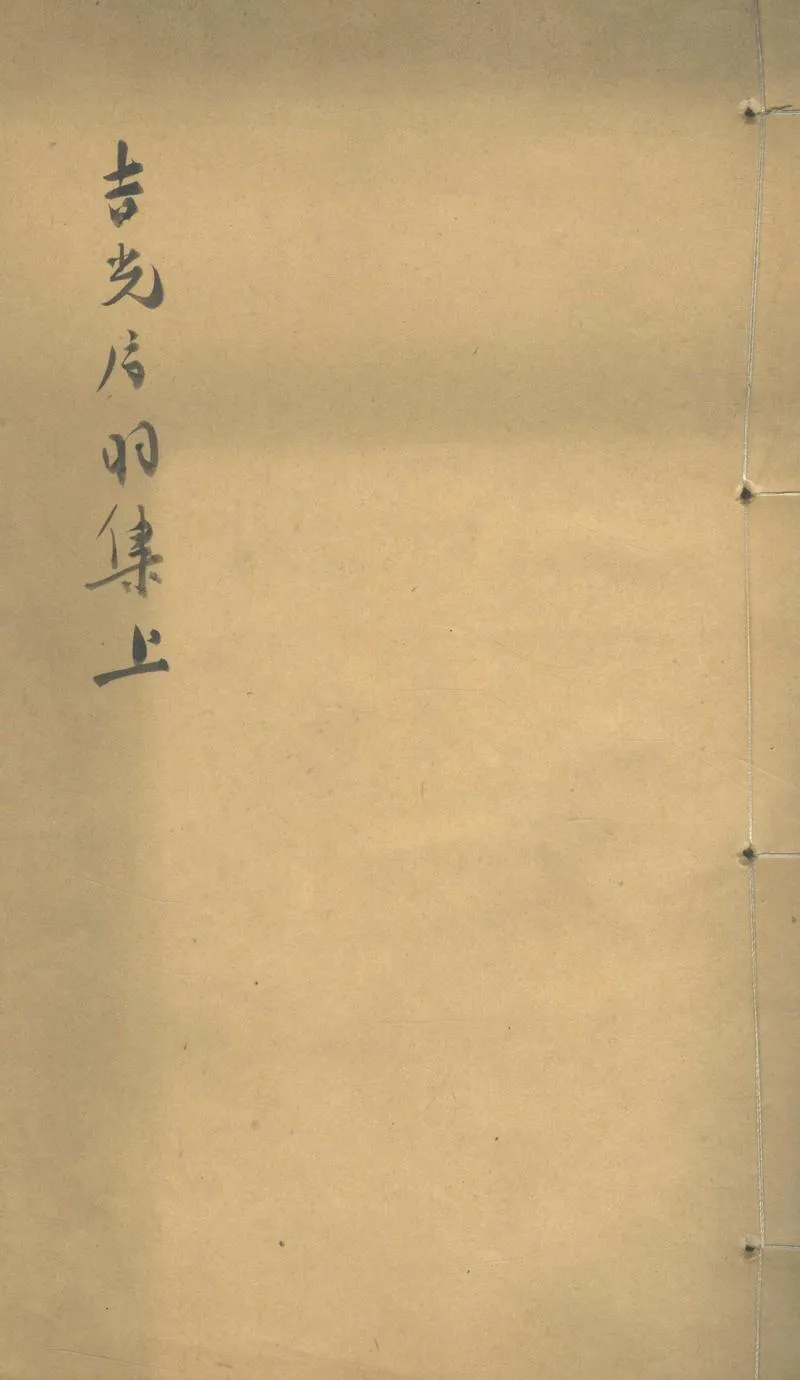 吉光片羽集上